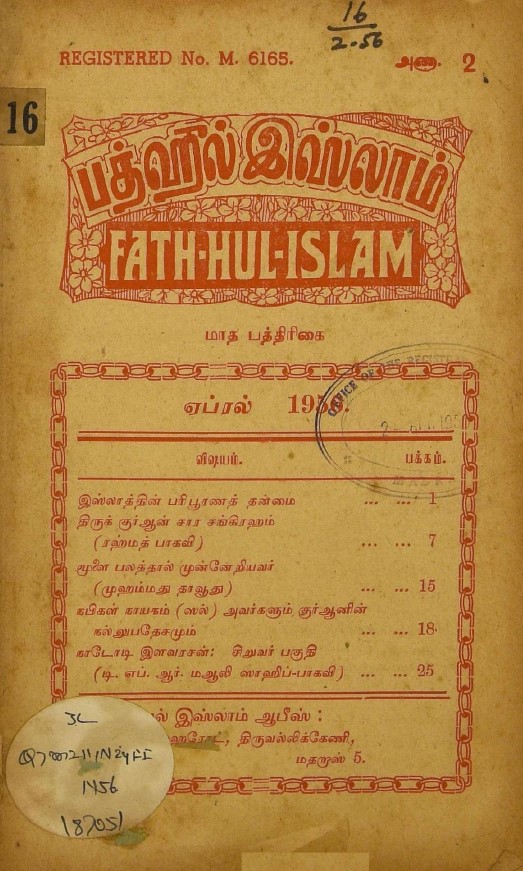 16
2.56
REGISTERED No. M. 6165.
அணா. 2
16
பத்ஹுல் இஸ்லாம்
FATH-HUL-ISLAM
மாத பத்திரிகை
ஏப்ரல் 195
OFFICE OF THE
விஷயம். பக்கம்.
இஸ்லாத்தின் பரிபூரணத் தன்மை ... ... 1
திருக் குர்ஆன் சார சங்கிரஹம்
(ரஹ்மத் பாகவி) ... ... 7
மூளை பலத்தால் முன்னேறியவர்
(முஹம்மது தாவூது) ... ... 15
நபிகள் நாயகம் (ஸல்) அவர்களும் குர்ஆனின்
நல்லுபதேசமும் ... ... 18
நாடோடி இளவரசன்: சிறுவர் பகுதி
(டி. எப். ஆர். மஆலி ஸாஹிப்-பாகவி) ... ... 25
ல் இஸ்லாம் ஆபீஸ் :
ஹைரோட், திருவல்லிக்கேணி,
மதறாஸ் 5.
187051